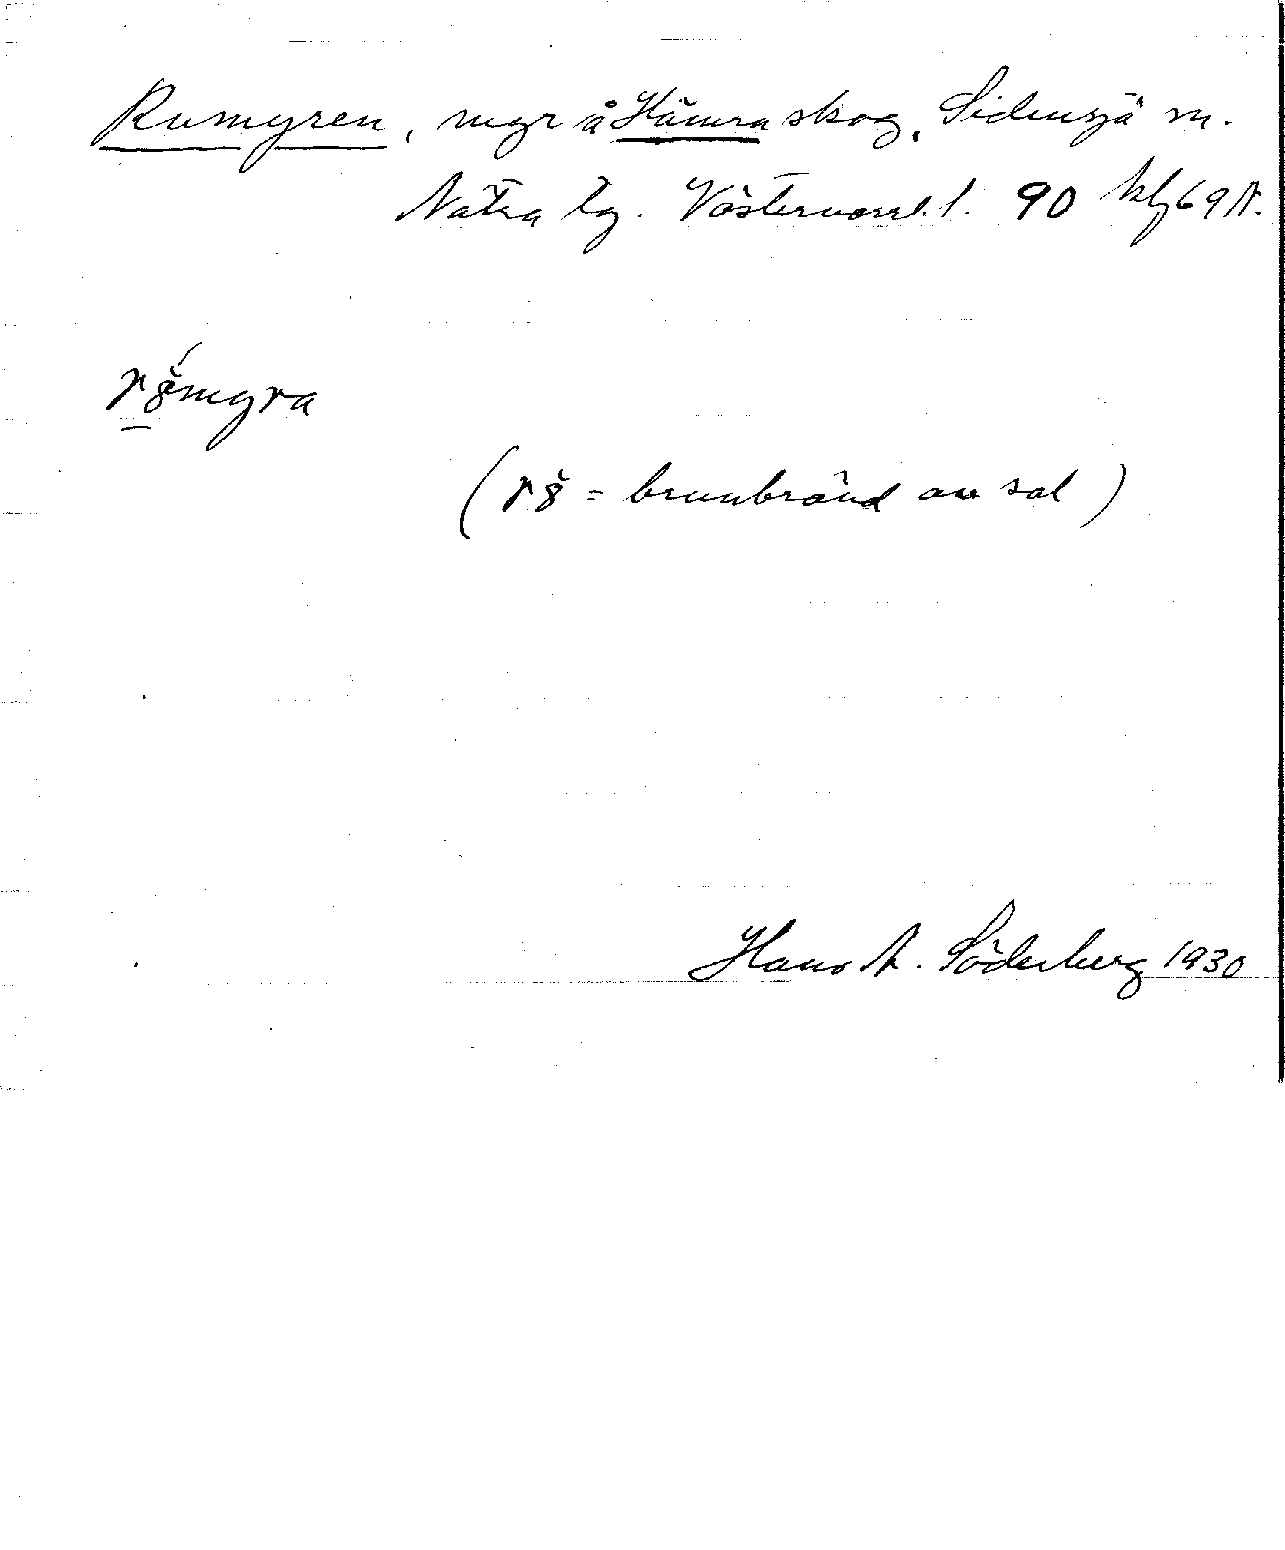 Rumyren, myr å Hämra skog, Sidensjö sn.
Nätra tg. Västernorrl. l. 90 kly 69 N.
rŏ́myra
(rŏ = brunbränd av sol)
Hans A. Söderberg 1930